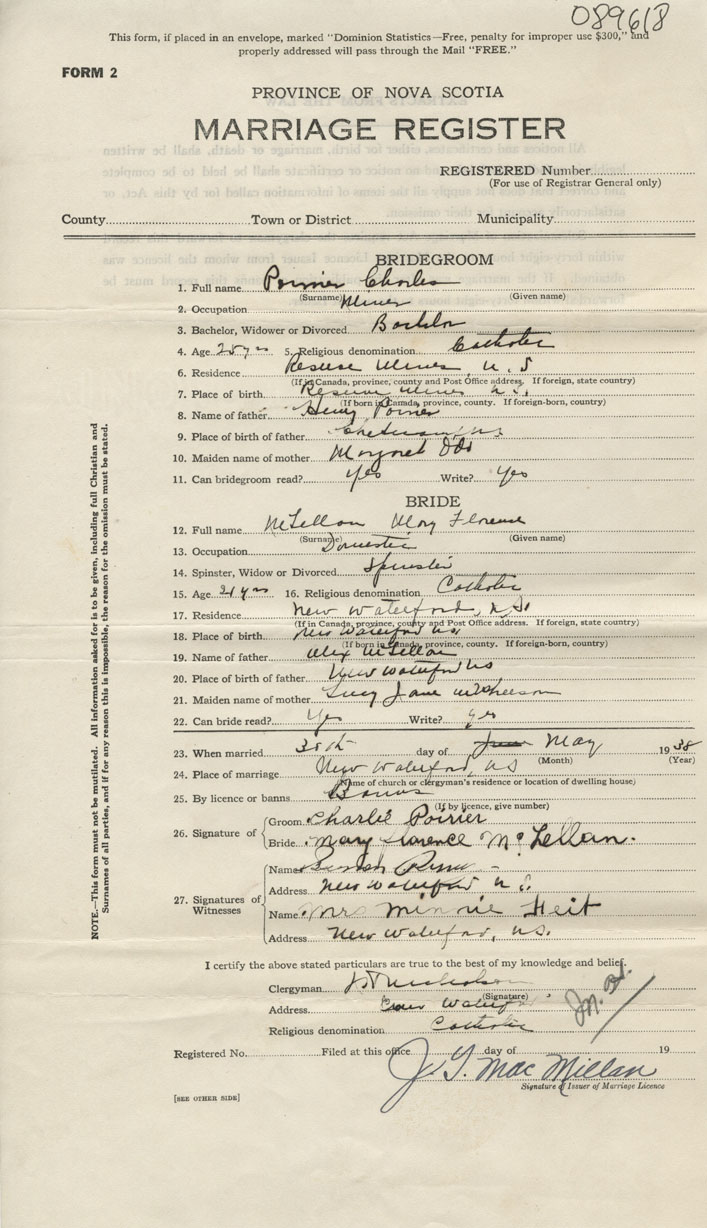 089618
This form, if placed in an envelope, marked "Dominion Statistics—Free, penalty for improper use $300," and
properly addressed will pass through the Mail "FREE."
FORM 2
PROVINCE OF NOVA SCOTIA
MARRIAGE REGISTER
REGISTERED Number
(For use of Registrar General only)
County Town or District Municipality
BRIDEGROOM
1. Full name Poirier Charles
(Surname) (Given name)
2. Occupation Miner
3. Bachelor, Widower or Divorced Bachelor
4. Age 25 yrs 5. Religious denomination Catholic
6. Residence Reserve Mines, N.S
(If in Canada, province, county and Post Office address. If foreign, state country)
7. Place of birth Reserve Mines N.S.
(If born in Canada, province, county. If foreign-born, country)
8. Name of father Henry Poirier
9. Place of birth of father N.S
10. Maiden name of mother Margaret
11. Can bridegroom read? Yes Write? Yes
BRIDE
12. Full name McLellan Mary Florence
(Surname) (Given name)
13. Occupation Domestic
14. Spinster, Widow or Divorced Spinster
15. Age 21 yrs 16. Religious denomination Catholic
17. Residence New Waterford, N.S.
(If in Canada, province, county and Post Office address. If foreign, state country)
18. Place of birth New Waterford N.S.
(If born in Canada, province, county. If foreign-born, country)
19. Name of father Alex McLellan
20. Place of birth of father New Waterford NS
21. Maiden name of mother Lucy Jane McPherson
22. Can bride read? Yes Write? Yes
23. When married 30th day of June May 1938
(Month) (Year)
24. Place of marriage New Waterford, NS
(Name of church or clergyman's residence or location of dwelling house)
25. By licence or banns Banns
(If by licence, give number)
26. Signature of Groom Charlie Poirier
Bride Mary Florence McLellan.
27. Signatures of Witnesses
Name
Address New Waterford N.S.
Name Mrs Minnie Heit
Address New Waterford, N.S.
I certify the above stated particulars are true to the best of my knowledge and belief.
Clergyman Nicholson
(Signature)
Address Waterford
Religious denomination Catholic
Registered No. Filed at this office day of 19
J. Y. MacMillan
Signature of Issuer of Marriage Licence
[SEE OTHER SIDE]
NOTE.—This form must not be mutilated. All information asked for is to be given, including full Christian and
Surnames of all parties, and if for any reason this is impossible, the reason for the omission must be stated.